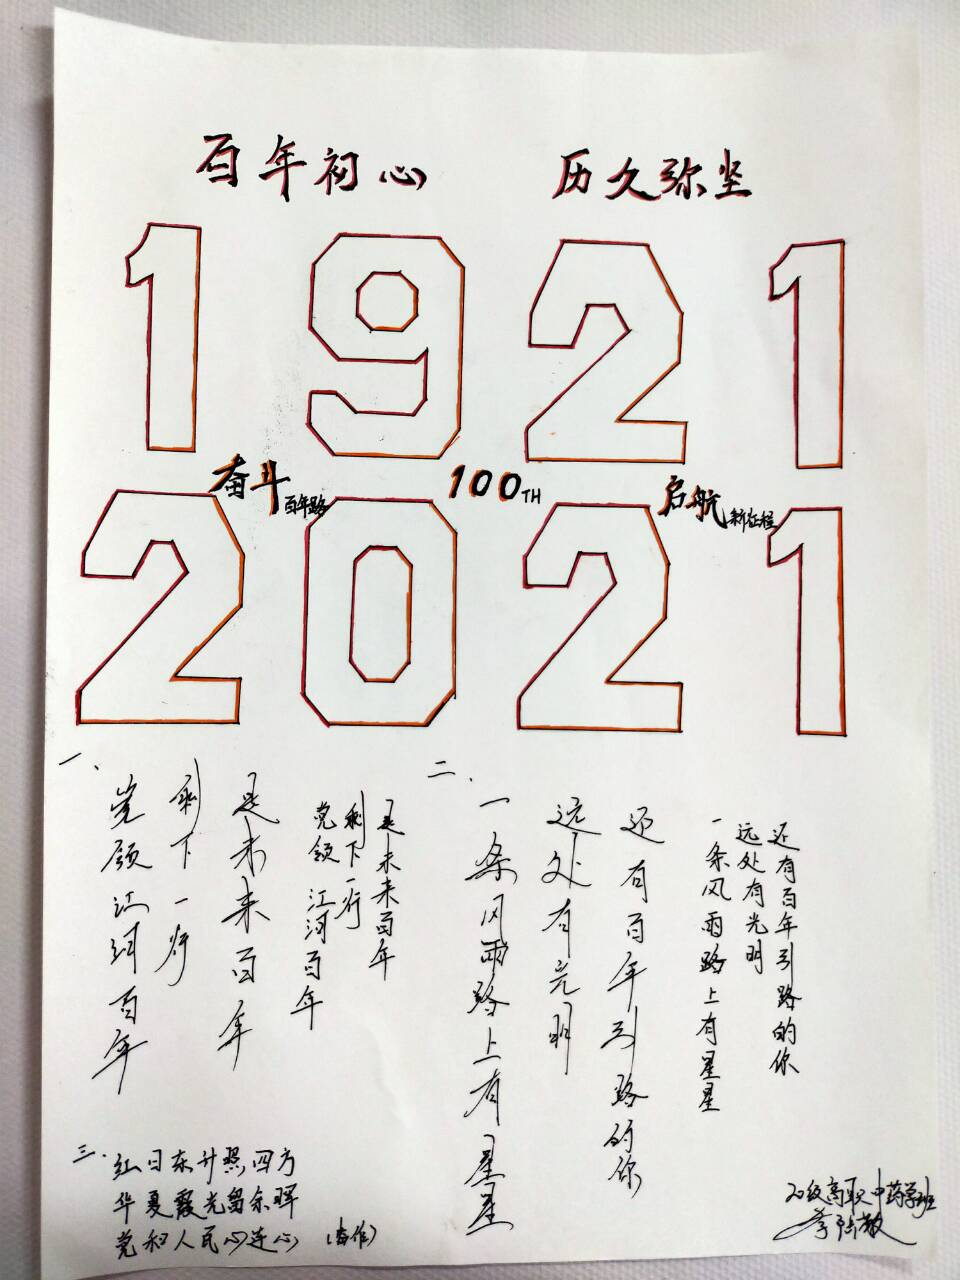 百年初心 历久弥坚
1921
奋斗百年路 100TH 启航新征程
2021
一、
党领江河百年
剩下一行
是未来百年
党领江河百年
剩下一行
是未来百年
二、
一条风雨路上有星星
远处有光明
还有百年引路的你
一条风雨路上有星星
远处有光明
还有百年引路的你
三、
红日东升照四方
华夏霞光留余晖
党和人民心连心
20级高职中药学班